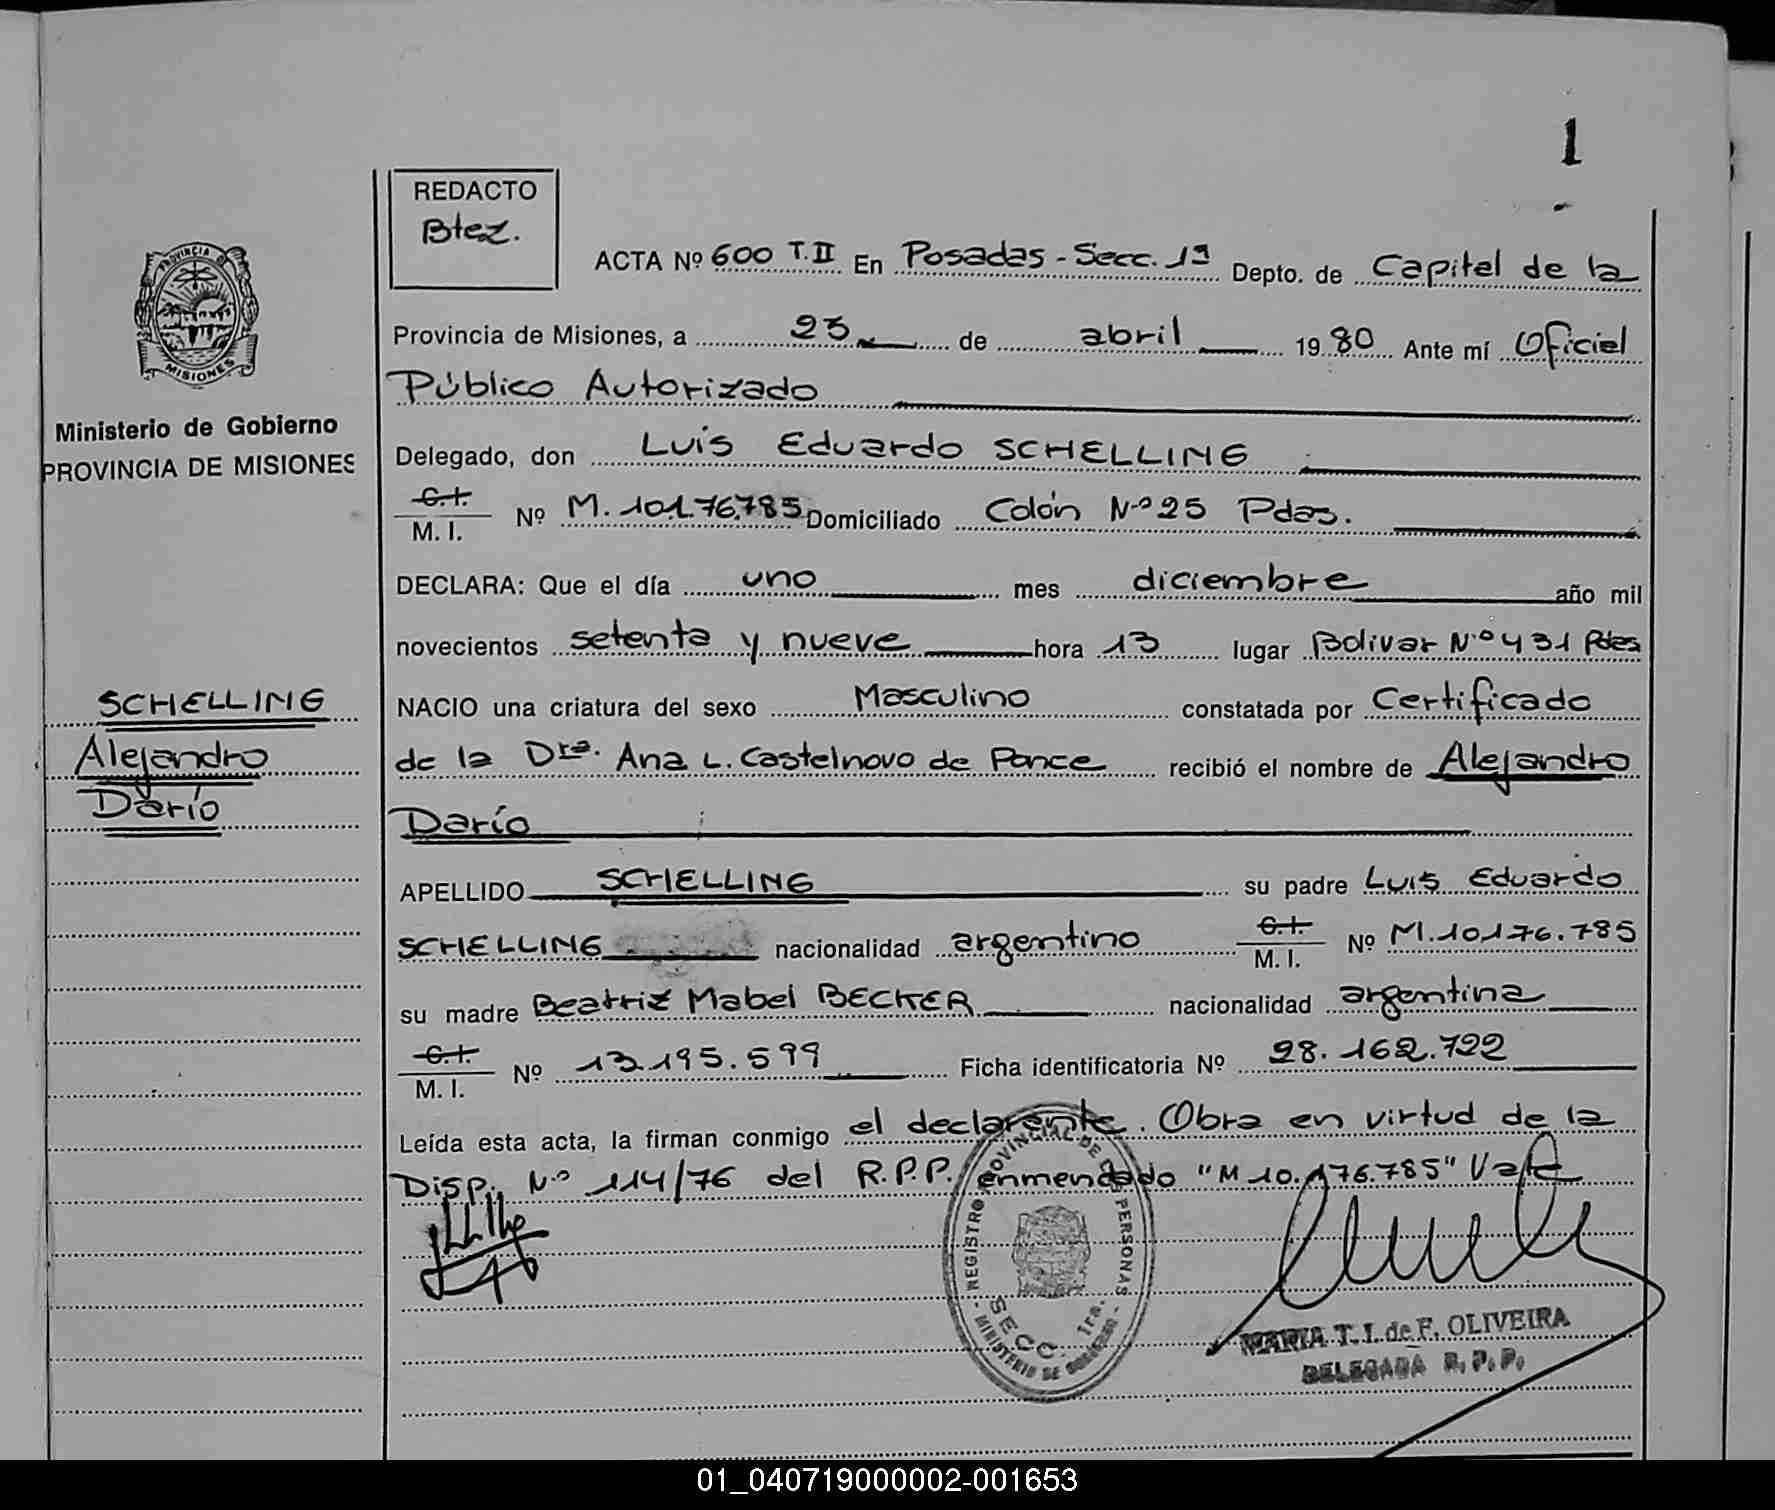 1
REDACTO
Btez.
ACTA Nº 600 T.II En Posadas - Secc. 1ª Depto. de Capital de la
Provincia de Misiones, a 23 de abril 1980 Ante mí Oficial
Público Autorizado
Delegado, don Luis Eduardo SCHELLING
C.I.
M. I. Nº M. 10.176.785 Domiciliado Colón Nº 25 Pdas.
DECLARA: Que el día uno mes diciembre año mil
novecientos setenta y nueve hora 13 lugar Bolivar Nº 431 Pdas
NACIO una criatura del sexo Masculino constatada por Certificado
de la Dra. Ana L. Castelnovo de Ponce recibió el nombre de Alejandro
Darío
APELLIDO SCHELLING su padre Luis Eduardo
SCHELLING nacionalidad argentino C.I.
M. I. Nº M.10.176.785
su madre Beatriz Mabel BECKER nacionalidad argentina
C.I.
M. I. Nº 13.195.599 Ficha identificatoria Nº 28.162.722
Leída esta acta, la firman conmigo el declarante. Obra en virtud de la
Disp. Nº 114/76 del R.P.P. enmendado "M 10.176.785" Vale
PROVINCIA DE
MISIONES
Ministerio de Gobierno
PROVINCIA DE MISIONES
SCHELLING
Alejandro
Darío
REGISTRO PROVINCIAL DE LAS PERSONAS
SECC. 1ra.
- MINISTERIO DE GOBIERNO -
MARIA T. I. de F. OLIVEIRA
DELEGADA R. P. P.
01_040719000002-001653